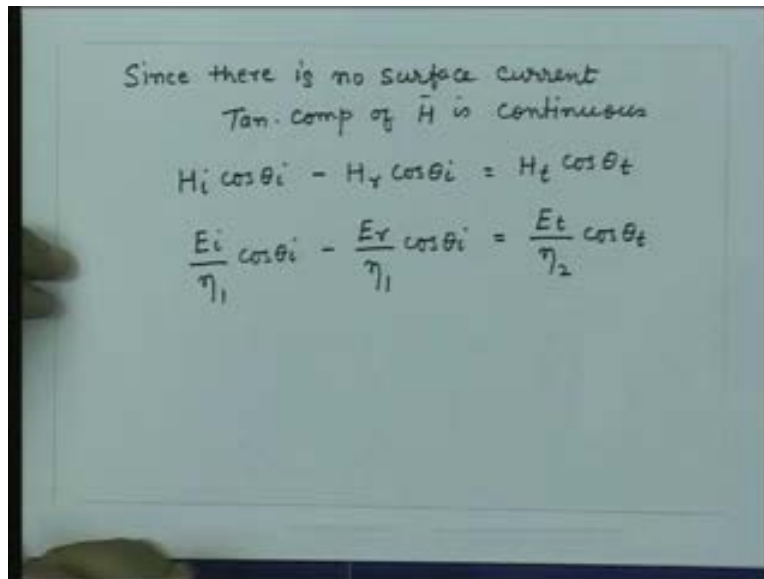 Since there is no surface current
Tan. comp of H̄ is continuous
Hi cosθi - Hr cosθi = Ht cosθt
Ei/η1 cosθi - Er/η1 cosθi = Et/η2 cosθt